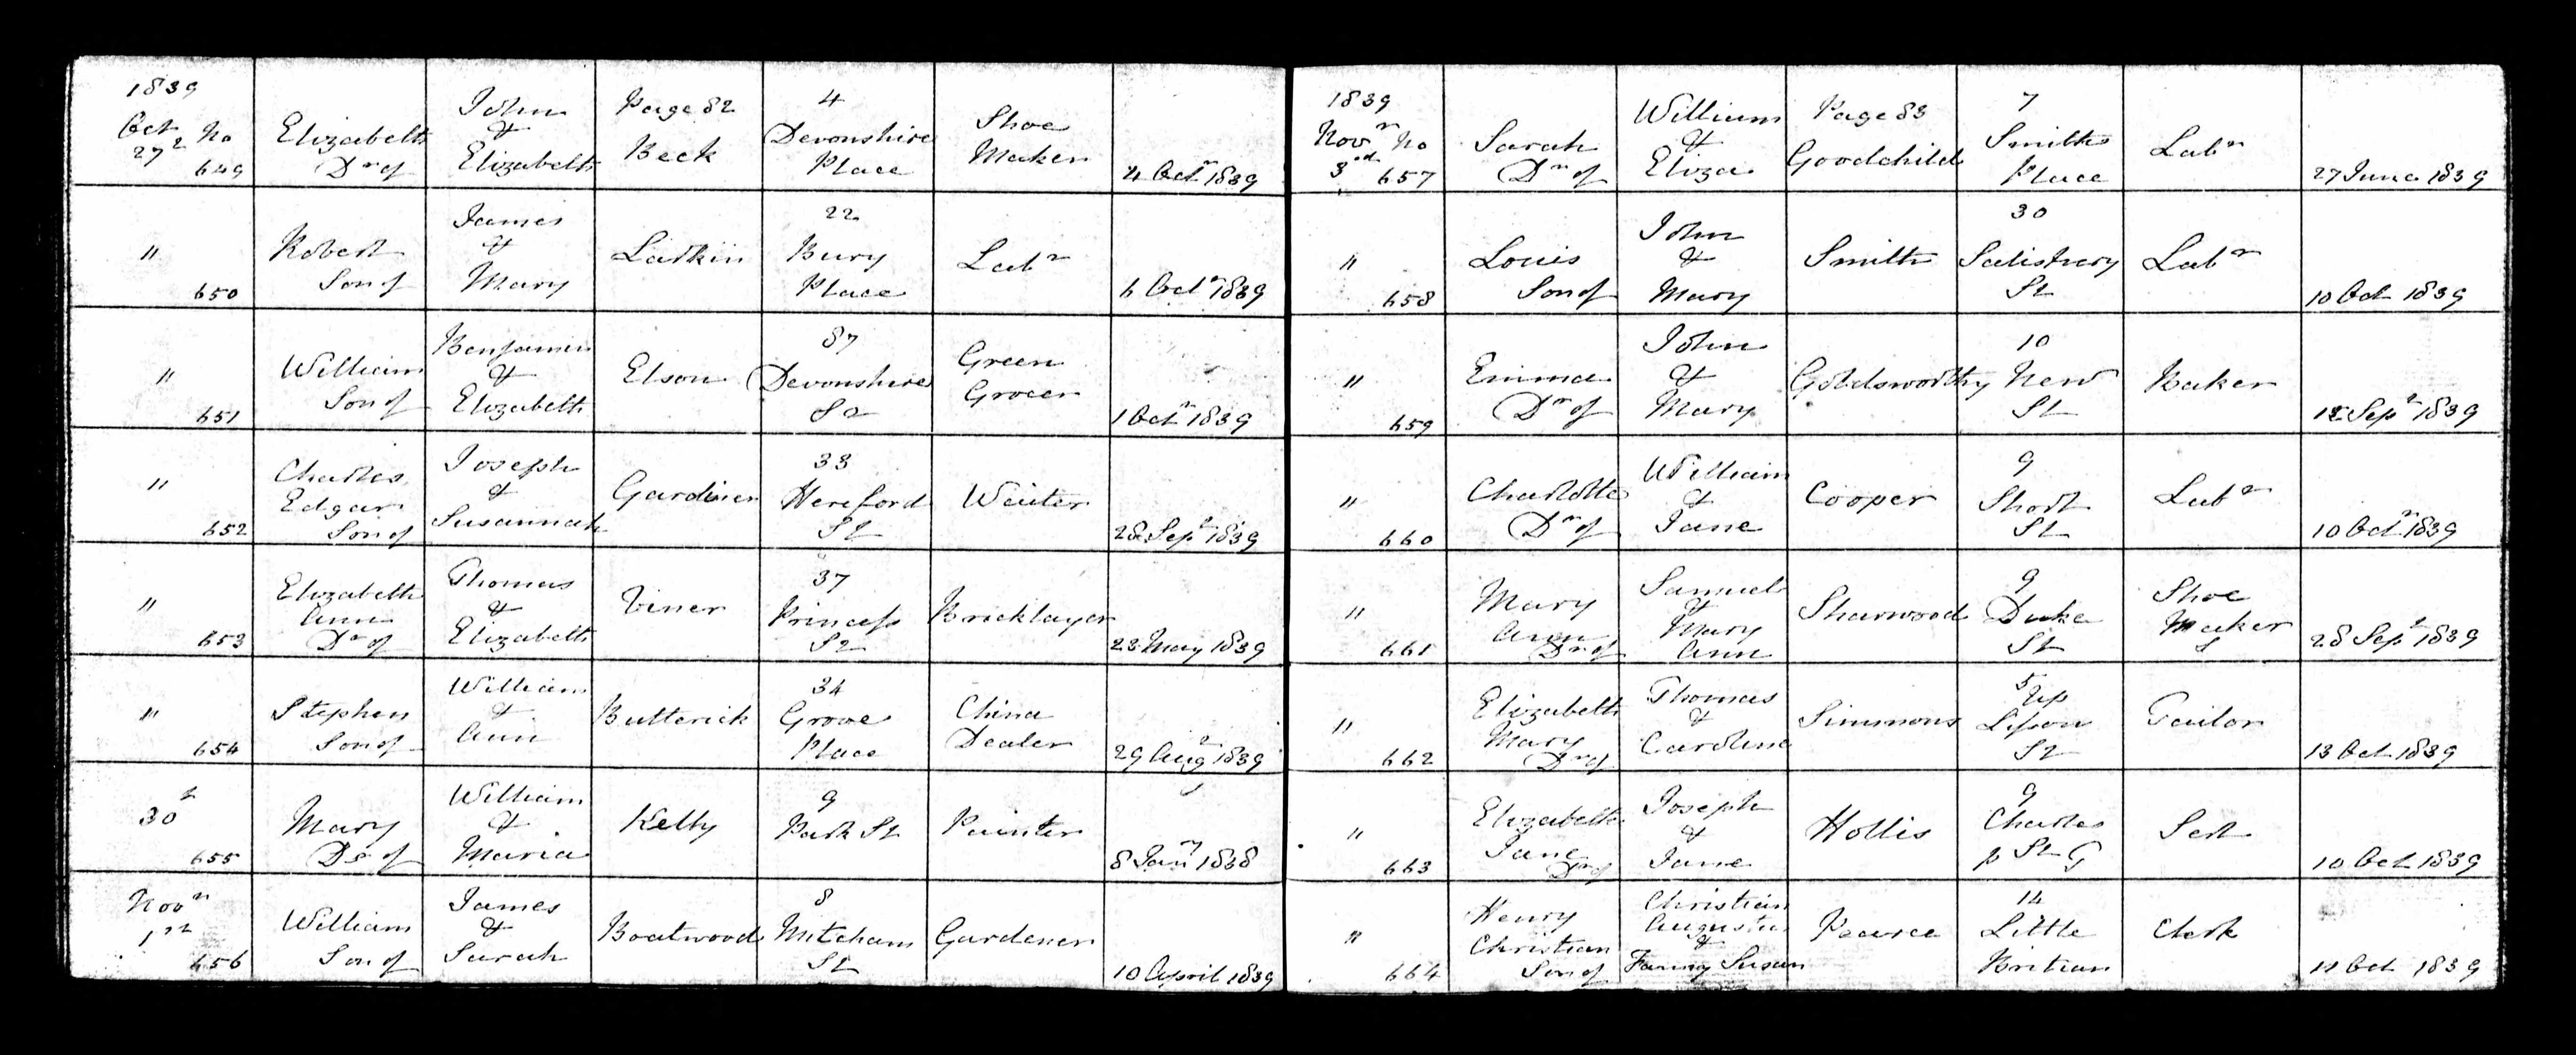 1839
Oct No
27 649
Elizabeth
Dr of
John
&
Elizabeth
Page 82
Beck
4
Devonshire
Place
Shoe
Maker
4 Oct 1839
"
650
Robert
Son of
James
&
Mary
Larkin
22
Bury
Place
Labr
6 Octr 1839
"
651
William
Son of
Benjamin
&
Elizabeth
Elson
87
Devonshire
St
Green
Grocer
1 Octr 1839
"
652
Charles
Edgar
Son of
Joseph
&
Susannah
Gardiner
33
Hereford
St
Waiter
28 Sept 1839
"
653
Elizabeth
Ann
Dr of
Thomas
&
Elizabeth
Viner
37
Princess
St
Bricklayer
23 May 1839
"
654
Stephen
Son of
William
&
Ann
Butterick
34
Grove
Place
China
Dealer
29 Augt 1839
30
655
Mary
Dr of
William
&
Maria
Kelly
9
Park St
Painter
8 Jany 1838
Novr
1st
656
William
Son of
James
&
Sarah
Boatwood
8
Mitcham
St
Gardener
10 April 1839
1839
Novr No
3rd 657
Sarah
Dr of
William
&
Eliza
Page 83
Goodchild
7
Smiths
Place
Labr
27 June 1839
"
658
Louis
Son of
John
&
Mary
Smith
30
Salisbury
St
Labr
10 Oct 1839
"
659
Emma
Dr of
John
&
Mary
Goldsworthy
10
New
St
Baker
Sept 1839
"
660
Charlotte
Dr of
William
&
Jane
Cooper
9
Short
St
Labr
10 Octr 1839
"
661
Mary
Ann
Dr of
Samuel
&
Mary
Ann
Sharwood
9
Duke
St
Shoe
Maker
28 Sept 1839
"
662
Elizabeth
Mary
Dr of
Thomas
&
Caroline
Simmons
5 Up
Lison
St
Tailor
13 Oct 1839
"
663
Elizabeth
Jane
Dr of
Joseph
&
Jane
Hollis
9
Charles
St
Sert
10 Oct 1839
"
664
Henry
Christian
Son of
Christian
Augustus
&
Fanny Susan
Pearce
14
Little
Britian
Clerk
11 Oct 1839